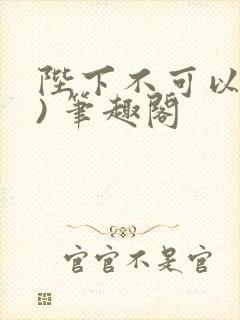 陛下不可以
)筆趣閣
官官不是官